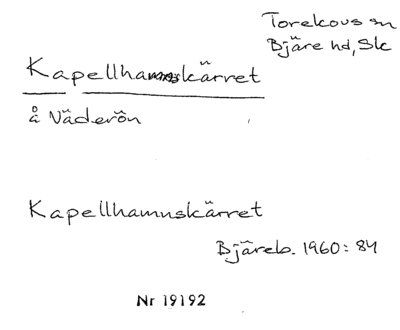 Torekovs sn
Bjäre hd, Sk
Kapellhamnskärret
å Väderön
Kapellhamnskärret
Bjäreb. 1960: 84
Nr 19192